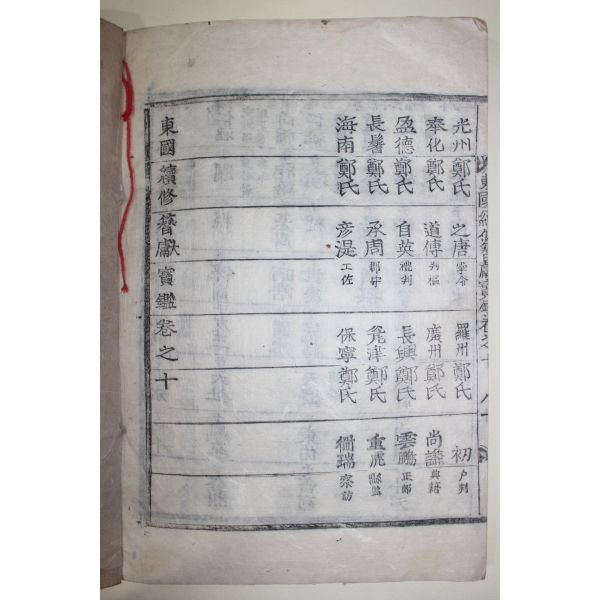 東國續修簪獻寶鑑卷之十
光州鄭氏 之唐 掌令 羅州鄭氏 初 戶判
奉化鄭氏 道傳 判樞 廣州鄭氏 尚謙 典籍
盈德鄭氏 自英 禮判 長興鄭氏 雲鵬 正郎
長鬐鄭氏 承周 郡守 瓮津鄭氏 重虎 縣監
海南鄭氏 彦湜 工佐 保寧鄭氏 衢瑞 察訪
東國續修簪獻寶鑑卷之十